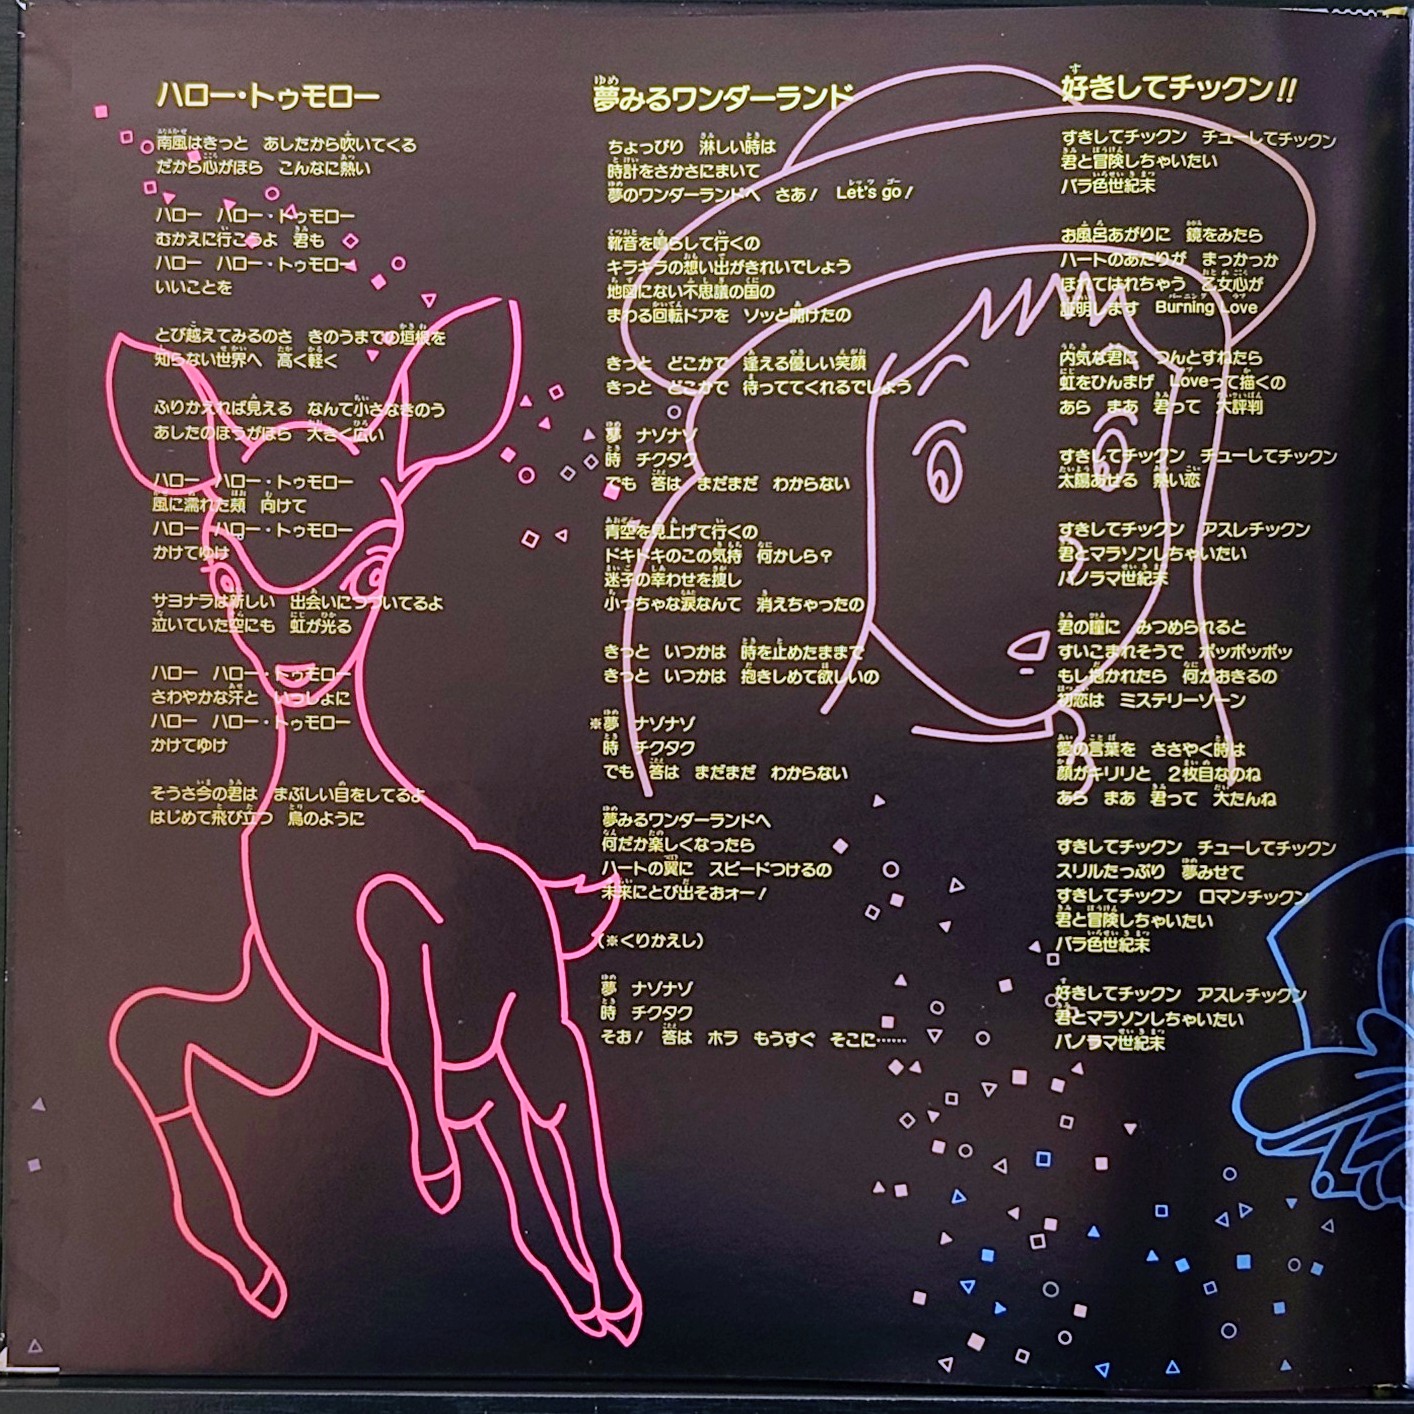 ハロー・トゥモロー
南風はきっと　あしたから吹いてくる
だから心がほら　こんなに熱い
ハロー　ハロー・トゥモロー
むかえに行こうよ　君も
ハロー　ハロー・トゥモロー
いいことを
とび越えてみるのさ　きのうまでの垣根を
知らない世界へ　高く軽く
ふりかえれば見える　なんて小さなきのう
あしたのほうがほら　大きく広い
ハロー　ハロー・トゥモロー
風に濡れた頬　向けて
ハロー　ハロー・トゥモロー
かけてゆけ
サヨナラは新しい　出会いにつづいてるよ
泣いていた空にも　虹が光る
ハロー　ハロー・トゥモロー
さわやかな汗と　いっしょに
ハロー　ハロー・トゥモロー
かけてゆけ
そうさ今の君は　まぶしい目をしてるよ
はじめて飛び立つ　鳥のように
夢みるワンダーランド
ちょっぴり　淋しい時は
時計をさかさにまいて
夢のワンダーランドへ　さあ！　Let's go！
靴音を鳴らして行くの
キラキラの想い出がきれいでしょう
地図にない不思議の国の
まわる回転ドアを　ソッと開けたの
きっと　どこかで　逢える優しい笑顔
きっと　どこかで　待っててくれるでしょう
夢　ナゾナゾ
時　チクタク
でも　答は　まだまだ　わからない
青空を見上げて行くの
ドキドキのこの気持　何かしら？
迷子の幸わせを捜し
小っちゃな涙なんて　消えちゃったの
きっと　いつかは　時を止めたままで
きっと　いつかは　抱きしめて欲しいの
※夢　ナゾナゾ
時　チクタク
でも　答は　まだまだ　わからない
夢みるワンダーランドへ
何だか楽しくなったら
ハートの翼に　スピードつけるの
未来にとび出そおォー！
（※くりかえし）
夢　ナゾナゾ
時　チクタク
そお！　答は　ホラ　もうすぐ　そこに……
好きしてチックン!!
すきしてチックン　チューしてチックン
君と冒険しちゃいたい
バラ色世紀末
お風呂あがりに　鏡をみたら
ハートのあたりが　まっかっか
ほれてほれちゃう　乙女心が
証明します　Burning Love
内気な君に　つんとすねたら
虹をひんまげ　Loveって描くの
あら　まあ　君って　大評判
すきしてチックン　チューしてチックン
太陽あせる　熱い恋
すきしてチックン　アスレチックン
君とマラソンしちゃいたい
パノラマ世紀末
君の瞳に　みつめられると
すいこまれそうで　ポッポッポッ
もし抱かれたら　何がおきるの
初恋は　ミステリーゾーン
愛の言葉を　ささやく時は
顔がキリリと　2枚目なのね
あら　まあ　君って　大たんね
すきしてチックン　チューしてチックン
スリルたっぷり　夢みせて
すきしてチックン　ロマンチックン
君と冒険しちゃいたい
バラ色世紀末
好きしてチックン　アスレチックン
君とマラソンしちゃいたい
パノラマ世紀末